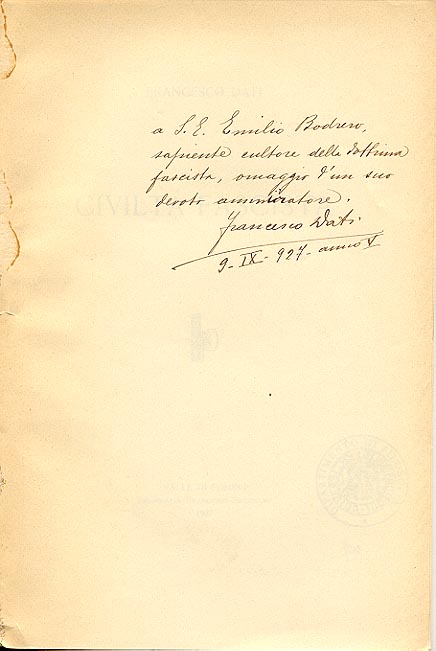 FRANCESCO DATI
a S. E. Emilio Bodrero,
sapiente cultore della dottrina
fascista, omaggio d'un suo
devoto ammiratore.
Francesco Dati
9-IX-927- anno V
CIVILTÀ FASCISTA
1927